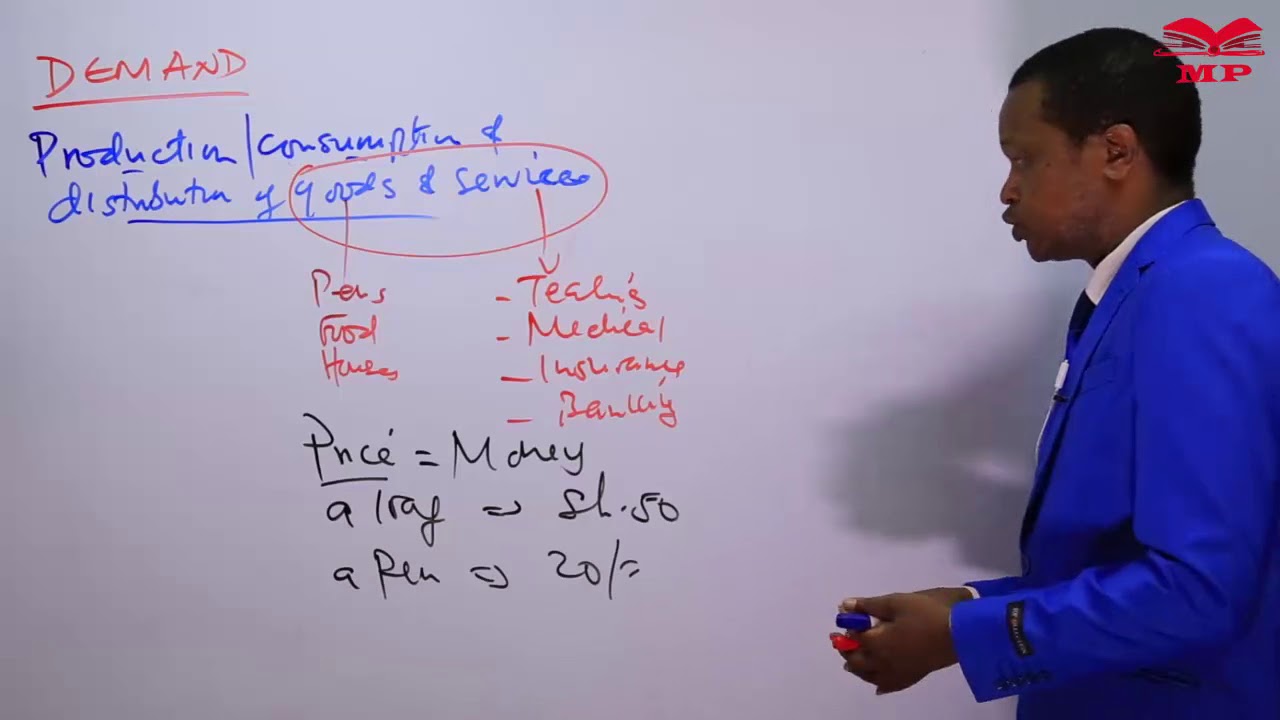 DEMAND
Production/consumption &
distribution of goods & services
Pens
Food
Houses
- Teaching
- Medical
- Insurance
- Banking
Price = Money
a loaf => Sh.50
a Pen => 20/=
MP